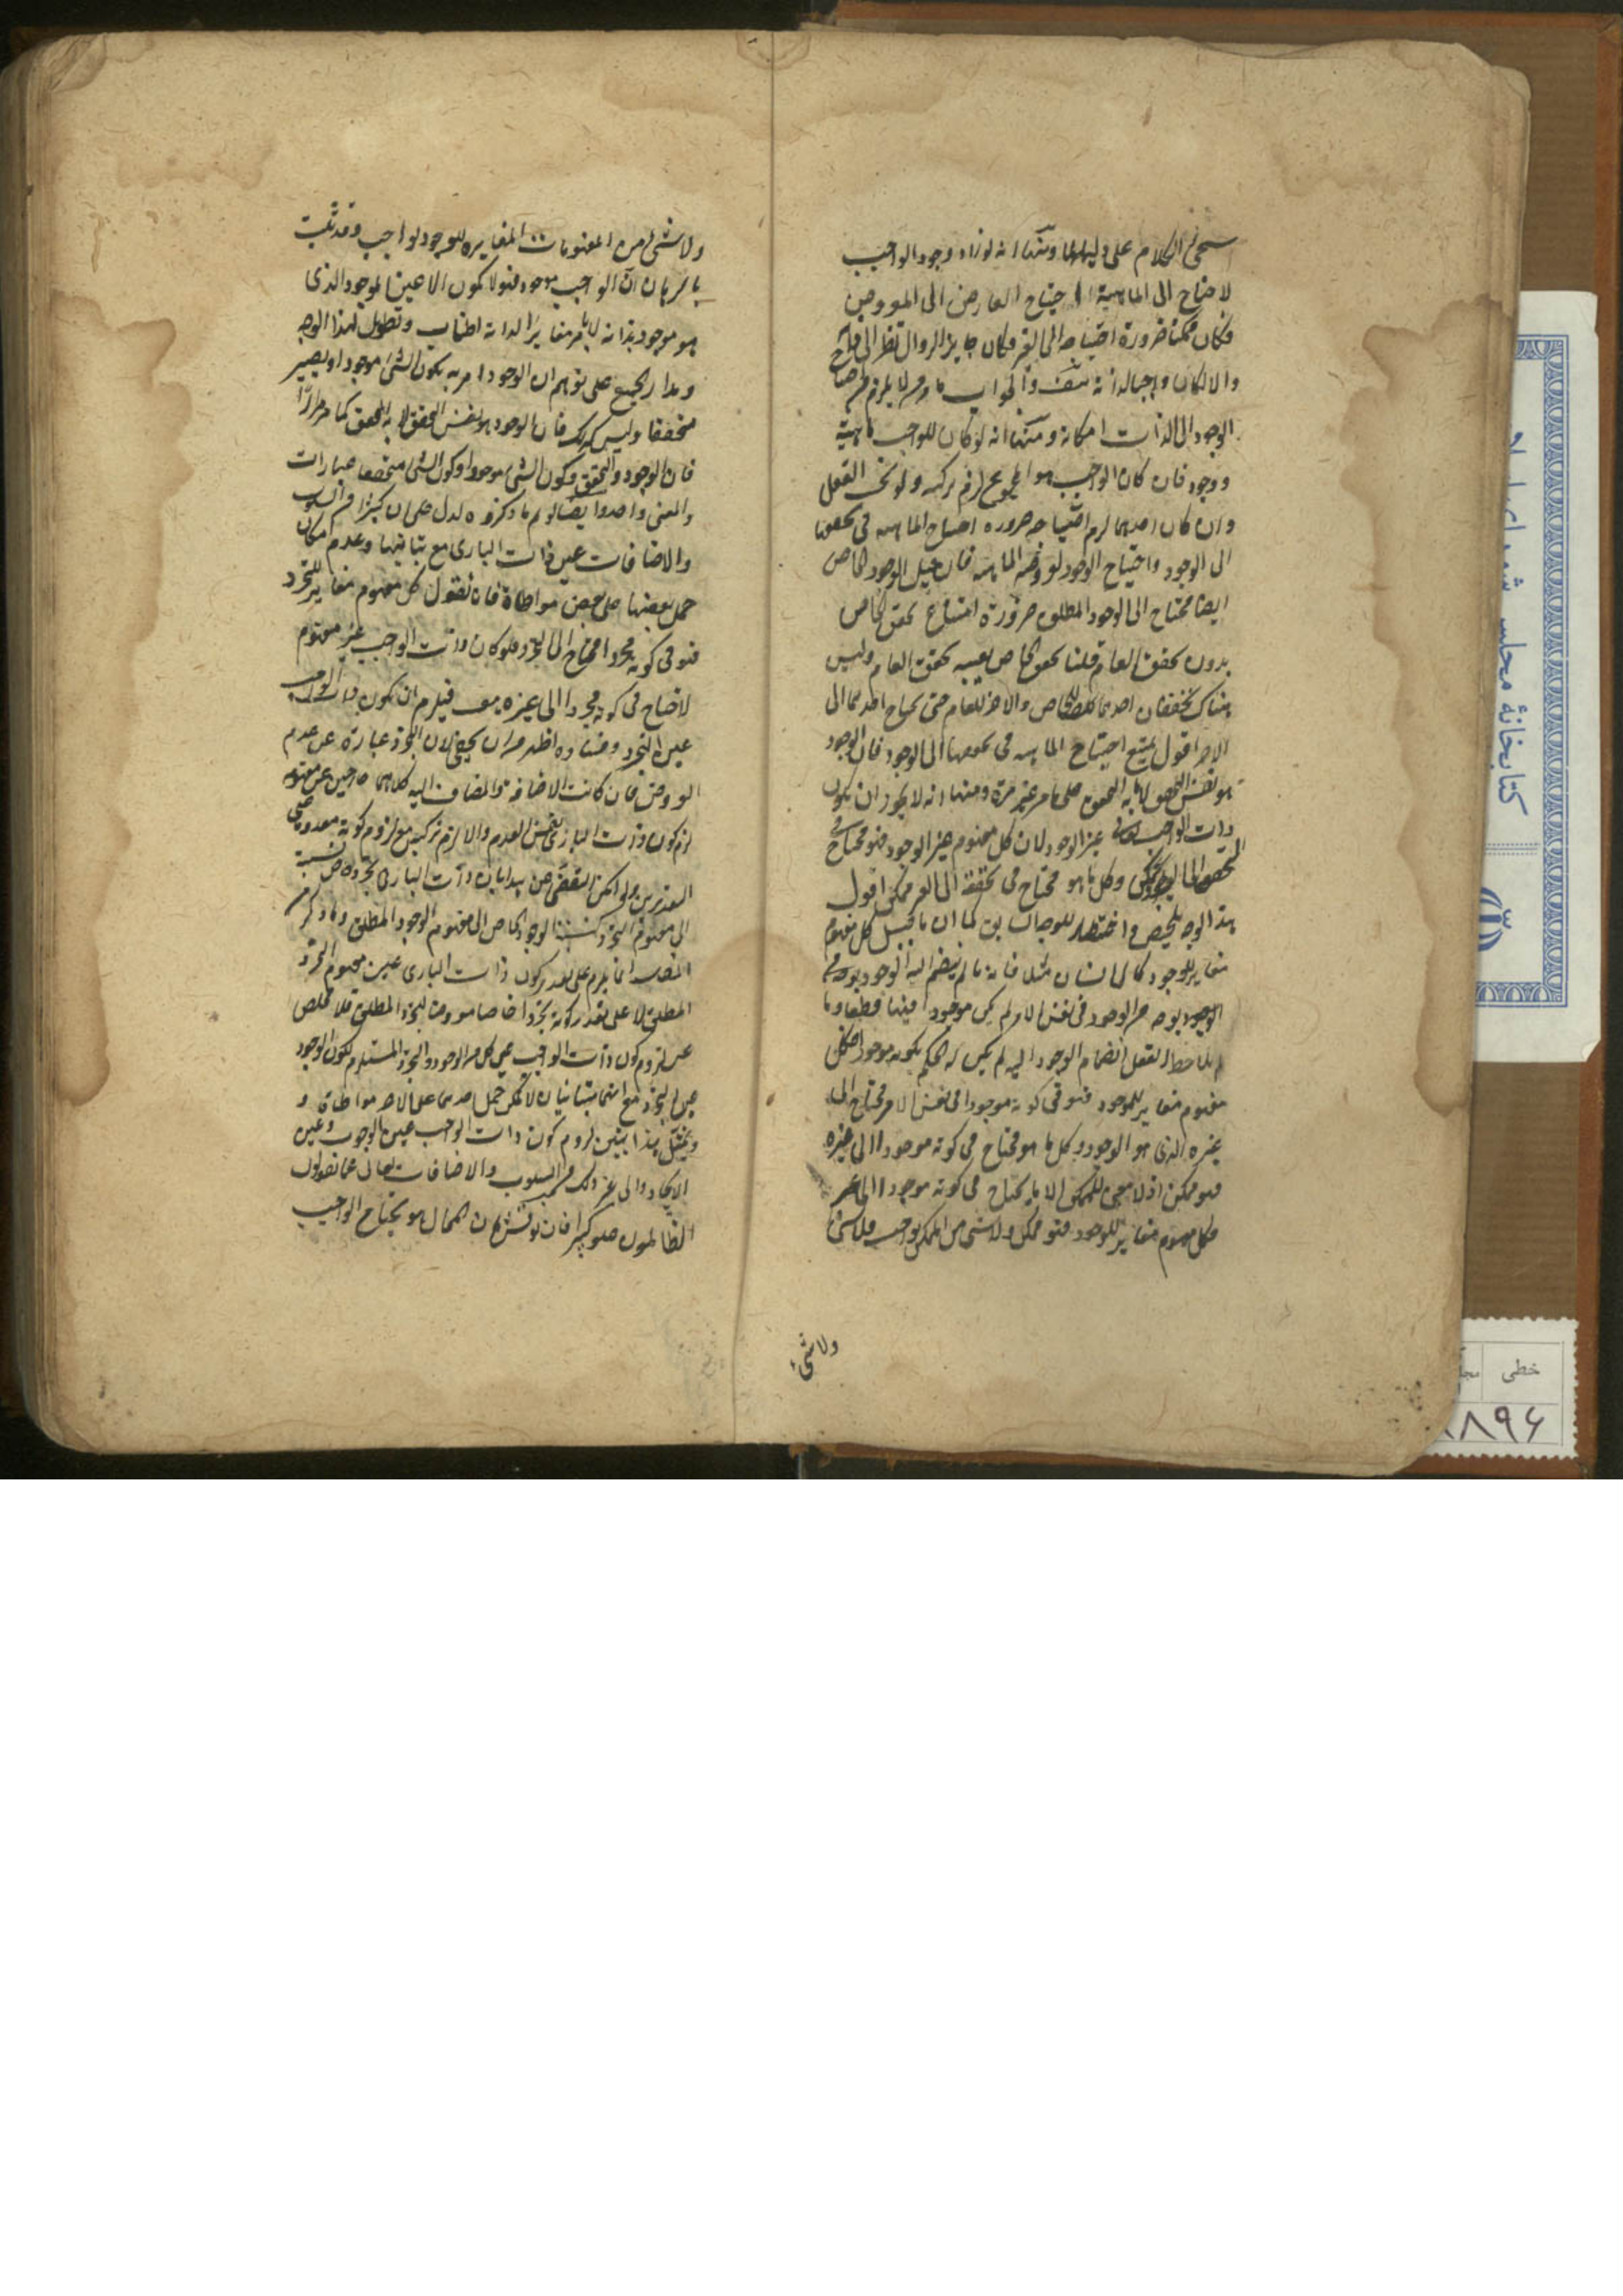 سيجئ الكلام على دليلها ومنها انه لو زاد وجود الواجب
لاحتاج الى الماهية احتياج العارض الى المعروض
فكان ممكنا ضرورة احتياجه الى الغير فكان جايز الزوال نظرا الى
والا لكان واجبا لذاته والجواب ما مر لا يلزم من احتياج
الوجود الى الذات امكانه ومنها انه لو كان للواجب ماهية
ووجود فان كان الواجب هو المجموع لزم تركبه ولو بحسب العقل
وان كان احدهما لزم احتياجه ضرورة احتياج الماهيه في تحققها
الى الوجود واحتياج الوجود لعروضه الماهيه فان قيل الوجود الخاص
ايضا محتاج الى الوجود المطلق ضرورة امتناع تحقق الخاص
بدون تحقق العام قلنا تحقق الخاص بعينه تحقق العام وليس
هناك تحققان احدهما للخاص والاخر للعام حتى يحتاج احدهما الى
الاخر اقول يمتنع احتياج الماهيه في تحققها الى الوجود فان الوجود
هو نفس التحقق لا ما به التحقق على ما مر غير مرة ومنها انه لا يجوز ان يكون
ذات الواجب غير الوجود لان كل مفهوم غير الوجود فهو محتاج في
وكل ما هو محتاج في تحققه الى الغير ممكن اقول
هذا الوجه تلخيص واختصار للوجه السابق كما ان ما قيل كل مفهوم
مغاير للوجود كالانسان مثلا فانه ما لم ينضم اليه الوجود بوجه من
الوجوه في نفس الامر لم يكن موجودا فيها قطعا وما
لم يلاحظ العقل انضمام الوجود اليه لم يكن له الحكم بكونه موجودا فكل
مفهوم مغاير للوجود فهو في كونه موجودا في نفس الامر محتاج الى
غيره الذي هو الوجود وكل ما هو محتاج في كونه موجودا الى غيره
فهو ممكن اذ لا معنى للممكن الا ما يحتاج في كونه موجودا الى غيره
فكل مفهوم مغاير للوجود فهو ممكن ولا شئ من الممكن بواجب فلا شئ
ولا شئ
ولا شئ من المفهومات المغايره للوجود بواجب وقد ثبت
بالبرهان ان الواجب موجود فهو لا يكون الا عين الوجود الذى
هو موجود بذاته لا بامر مغاير لذاته اطناب وتطويل لهذا الوجه
ومدار الجميع على توهم ان الوجود امر به يكون الشئ موجودا ويصير
متحققا وليس كذلك فان الوجود هو نفس التحقق لا ما به التحقق كما مر مرارا
فان الوجود والتحقق وكون الشئ موجودا وكون الشئ متحققا عبارات
والمعنى واحد وايضا لو تم ما ذكروه لدل على ان كثيرا من السلوب
والاضافات عين ذات البارى مع تباينها وعدم امكان
حمل بعضها على بعض مواطاة فانا نقول كل مفهوم مغاير للتجرد
فهو في كونه مجردا محتاج الى التجرد فلو كان ذات الواجب غير مفهوم
لاحتاج في كونه مجردا الى غيره فيلزم ان يكون ذات الواجب
عين التجرد وفساده اظهر من ان يخفى لان التجرد عبارة عن عدم
العروض فان كانت الاضافة والمضاف اليه كلاهما خارجين عن مفهومه
لزم كون ذات البارى نفس العدم والا لزم تركبه مع لزوم كونه معدوما على
التقديرين ولو امكن التفصى عن هذا بان ذات البارى تجرد خاص نسبة
الى مفهوم التجرد كنسبة الوجود الخاص الى مفهوم الوجود المطلق وما ذكر من
المفاسد انما يلزم على تقدير كون ذات البارى عين مفهوم التجرد
المطلق لا على تقدير كونه تجردا خاصا معروضا للتجرد المطلق فلا مخلص
عن لزوم كون ذات الواجب عين كل من الوجود والتجرد المستلزم لكون الوجود
عين التجرد مع انهما متباينان لا يمكن حمل احدهما على الاخر مواطاة و
وبمثل هذا يتبين لزوم كون ذات الواجب عين الوجوب وعين
الايجاد والى غير ذلك من السلوب والاضافات تعالى عما يقول
الظالمون علوا كبيرا فان نوقش بان المحال هو يحتاج الواجب
كتابخانهٔ مجلس شورای
خطی
۸۹۶